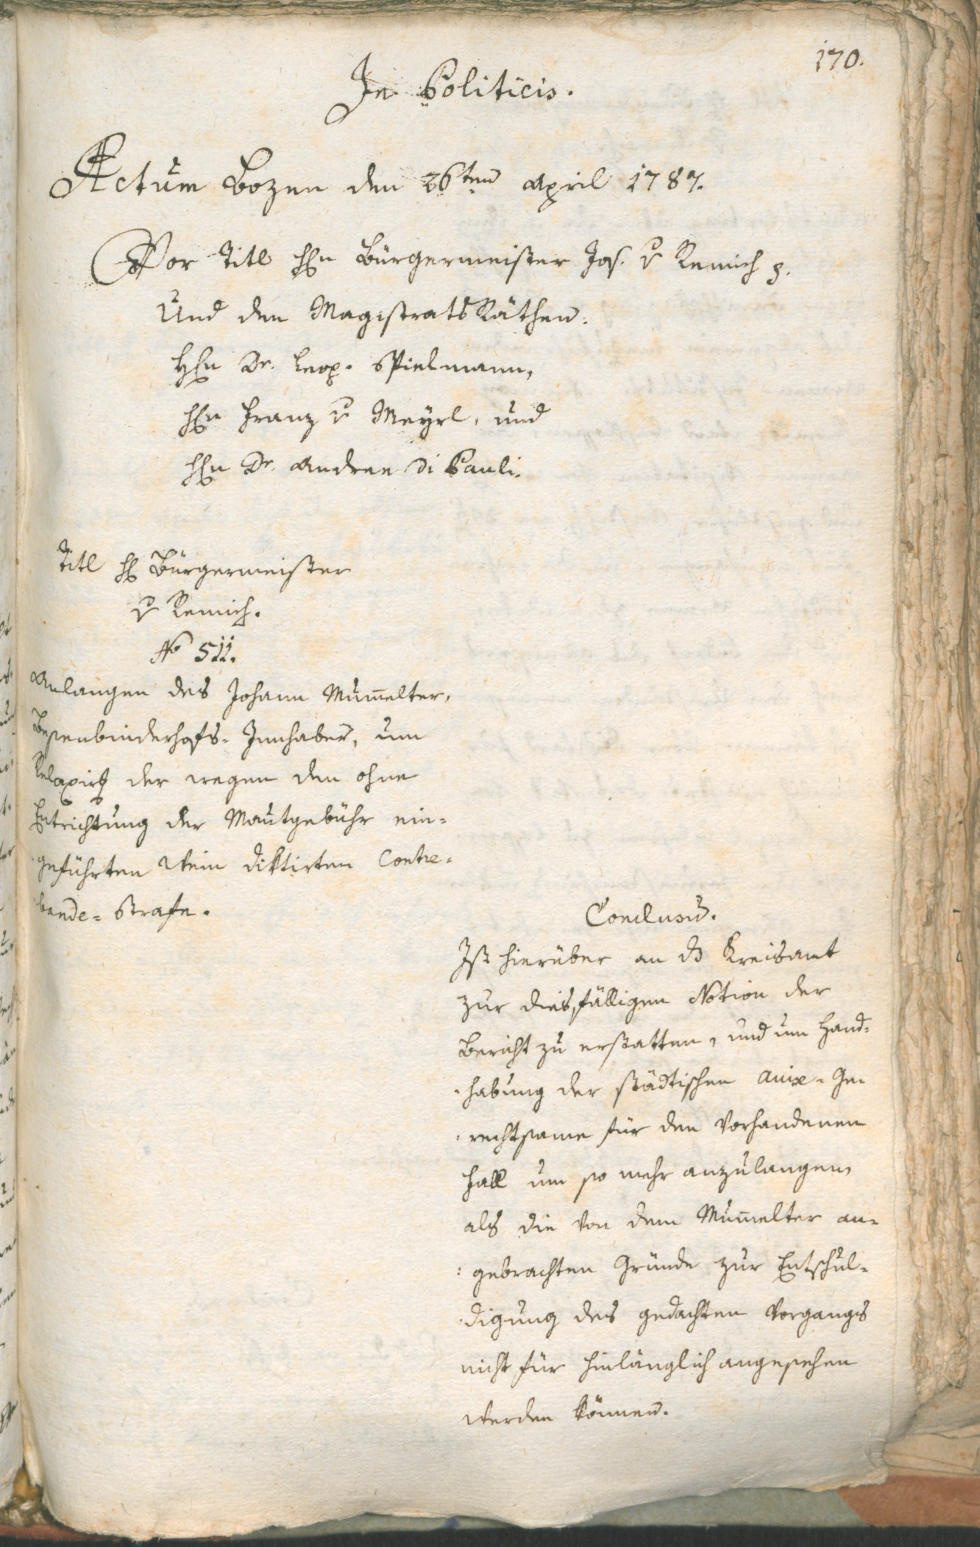 170.
In Politicis.
Actum Bozen den 26ten April 1787.
Vor Titl HEn Bürgermeister Jos. v Remich p.
Und den Magistrats Räthen.
HEn Dr. Leop. Spielmann,
HEn Franz v Meyrl, und
HEn Dr. Andree Di Pauli.
Titl HE Bürgermeister
v Remich.
No 511.
Anlangen des Johann Mum̅elter,
Besenbinderhofs-Innhaber, um
der wegen den ohne
Entrichtung der Mautgebühr ein-
geführten Wein diktirten Contre-
bande-Strafe.
Conclusum.
Ist hierüber an das Kreisamt
zur diesfälligen Notion der
Bericht zu erstatten, und um Hand-
habung der städtischen Ge-
rechtsame für den vorhandenen
Fall um so mehr anzulangen,
als die von dem Mum̅elter an-
gebrachten Gründe zur Entschul-
digung des gedachten Vorgangs
nicht für hinlänglich angesehen
werden können.